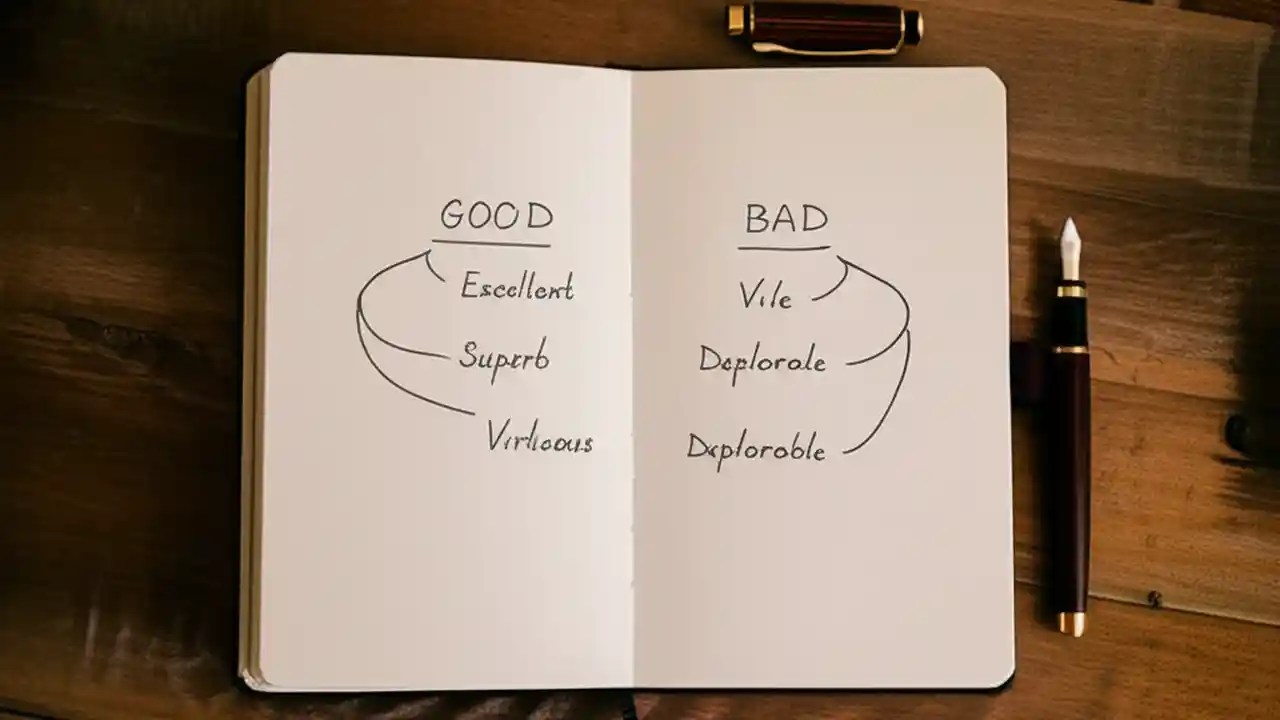 GOOD
Excellent
Superb
Virtuous
BAD
Vile
Deplorale
Deplorable